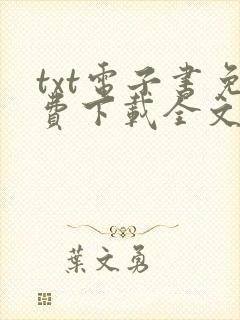 txt電子書免
費下載全文
葉文勇